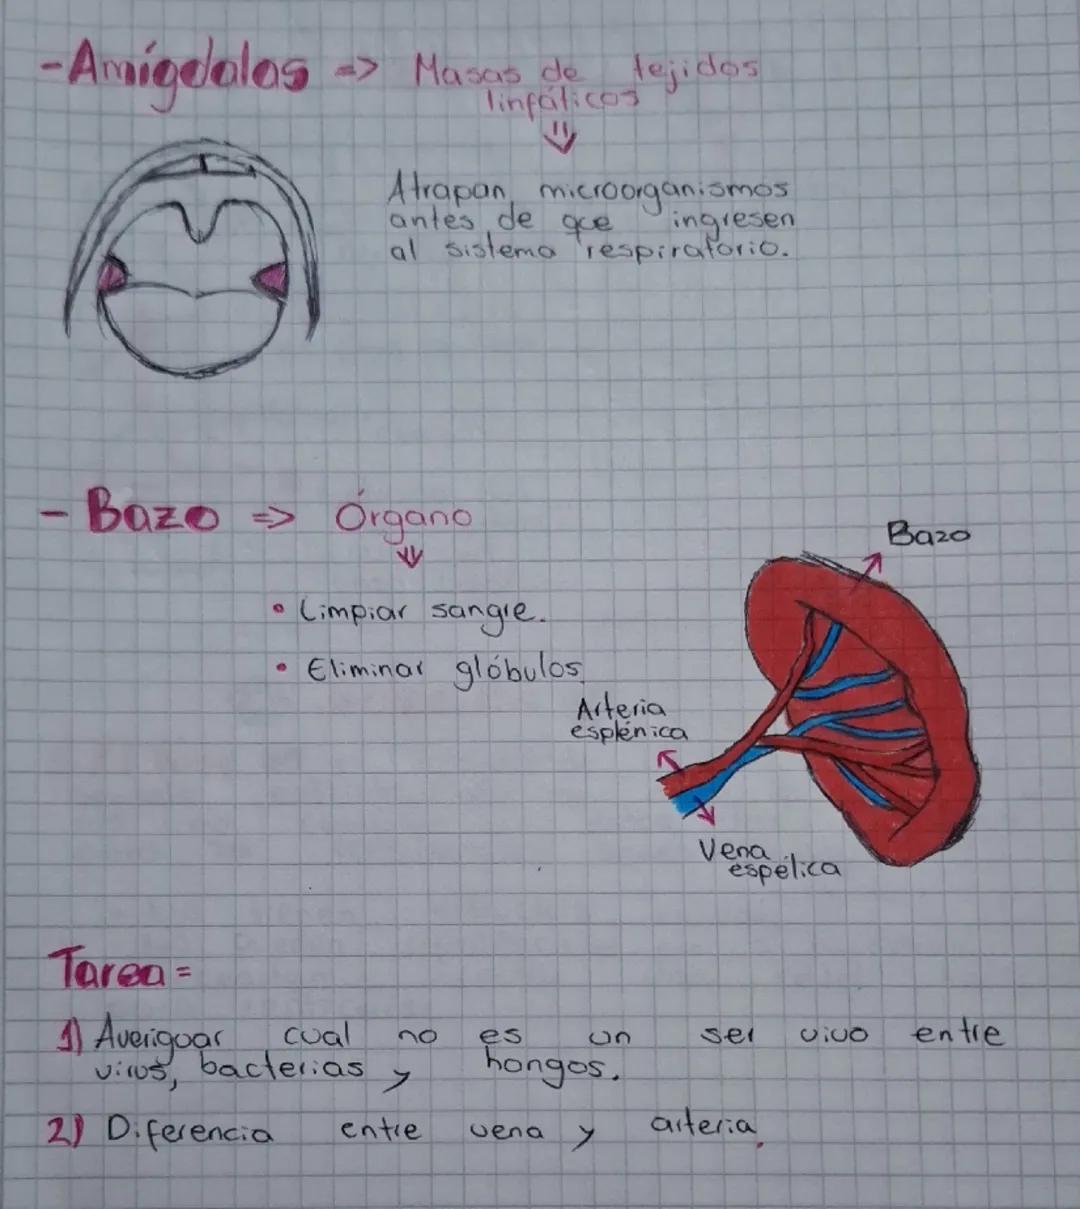 -Amígdalas => Masas de tejidos
linfáticos
Atrapan microorganismos
antes de que ingresen
al sistema respiratorio.
- Bazo => Órgano
Bazo
• Limpiar sangre.
• Eliminar glóbulos.
Arteria
esplénica
Vena
espélica
Tarea=
1) Averiguar cual no es un ser vivo entre
virus, bacterias y hongos.
2) Diferencia entre vena y arteria.